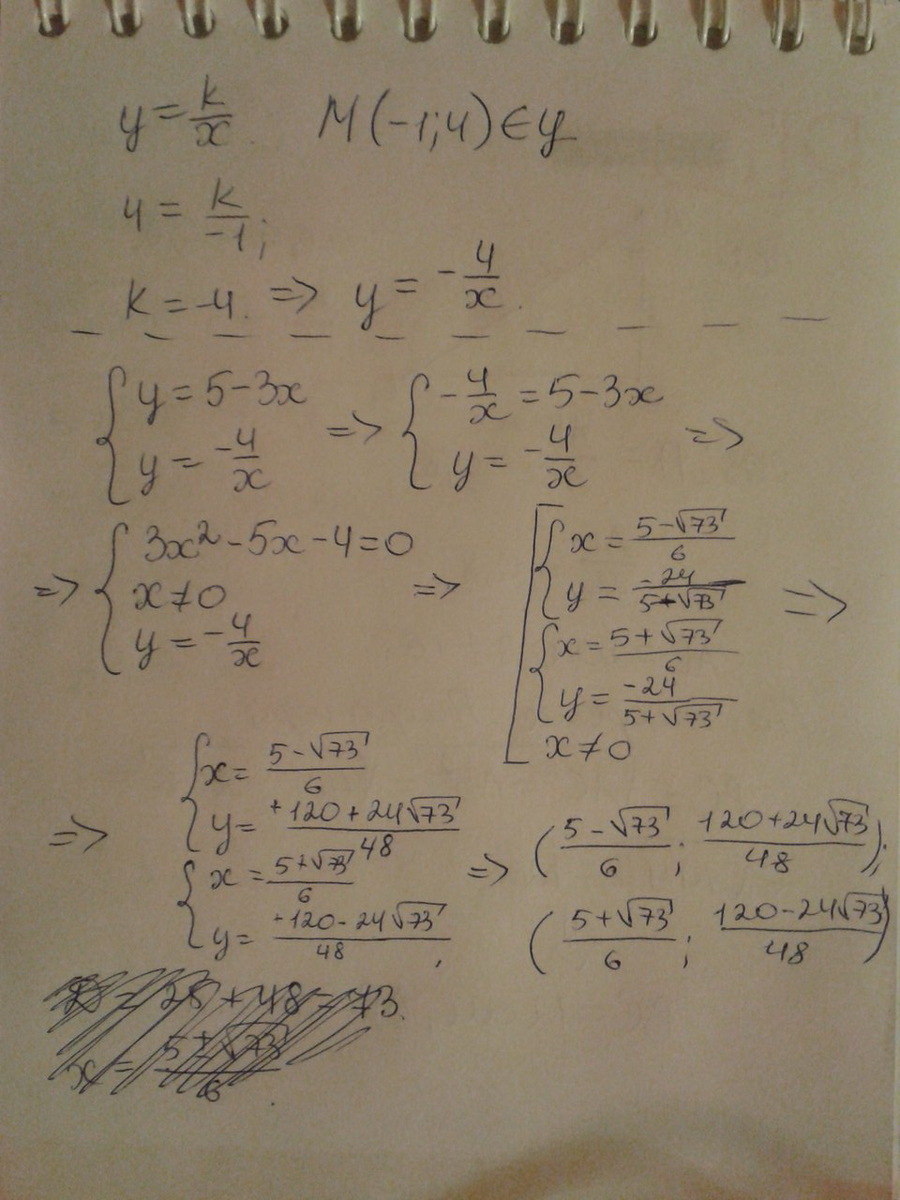 y = k/x. M(-1;4) ∈ y
4 = k/-1;
k = -4. => y = -4/x.
{ y = 5-3x
y = -4/x
=> { -4/x = 5-3x
y = -4/x
=>
=> { 3x² -5x-4=0
x≠0
y = -4/x
=> [ { x = (5-√73)/6
y = -24/(5+√73)
{ x = (5+√73)/6
y = -24/(5+√73)
x≠0
=>
=> { x = (5-√73)/6
y = (+120+24√73)/48
{ x = (5+√73)/6
y = (+120-24√73)/48,
=> ((5-√73)/6; (120+24√73)/48);
((5+√73)/6; (120-24√73)/48)
= 28+48=73.
x = (5±√73)/6